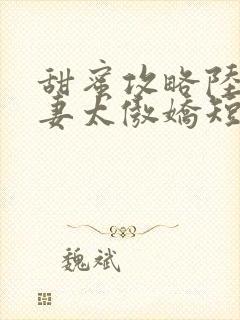 甜蜜攻略陸
妻太傲嬌短
魏斌